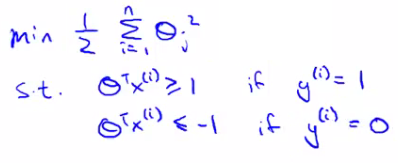 min 1/2 Σ_{i=1}^{n} θ_j^2
s.t. θ^T x^{(i)} ≥ 1 if y^{(i)} = 1
θ^T x^{(i)} ≤ -1 if y^{(i)} = 0